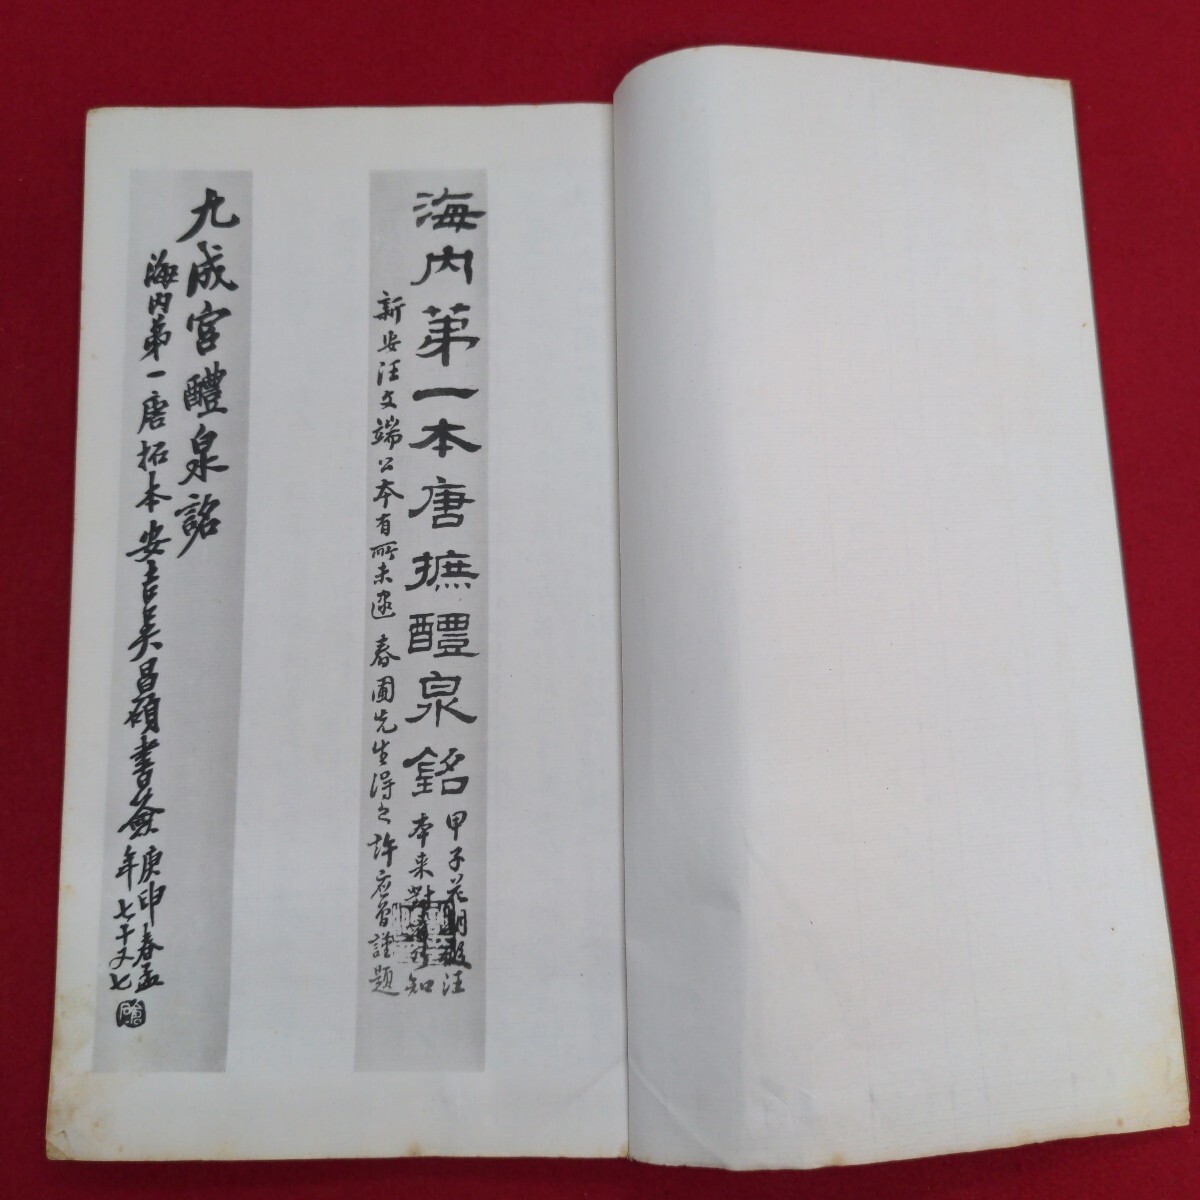 海内苐一本唐摭醴泉銘
甲子花朝假汪
本来對知
新安汪文端公本有所未逮 春圃先生得之許應曾謹題
九成宮醴泉銘
海内苐一唐拓本安吉吳昌碩書簽
庚申春孟
年七十又七